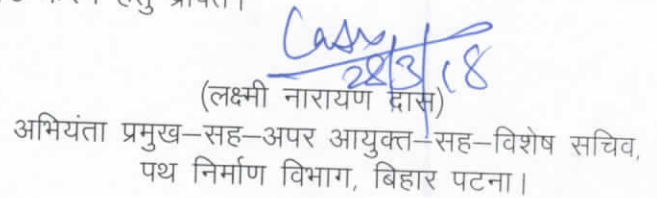 हेतु प्रेषित।
28/3/18
(लक्ष्मी नारायण दास)
अभियंता प्रमुख–सह–अपर आयुक्त–सह–विशेष सचिव,
पथ निर्माण विभाग, बिहार पटना।